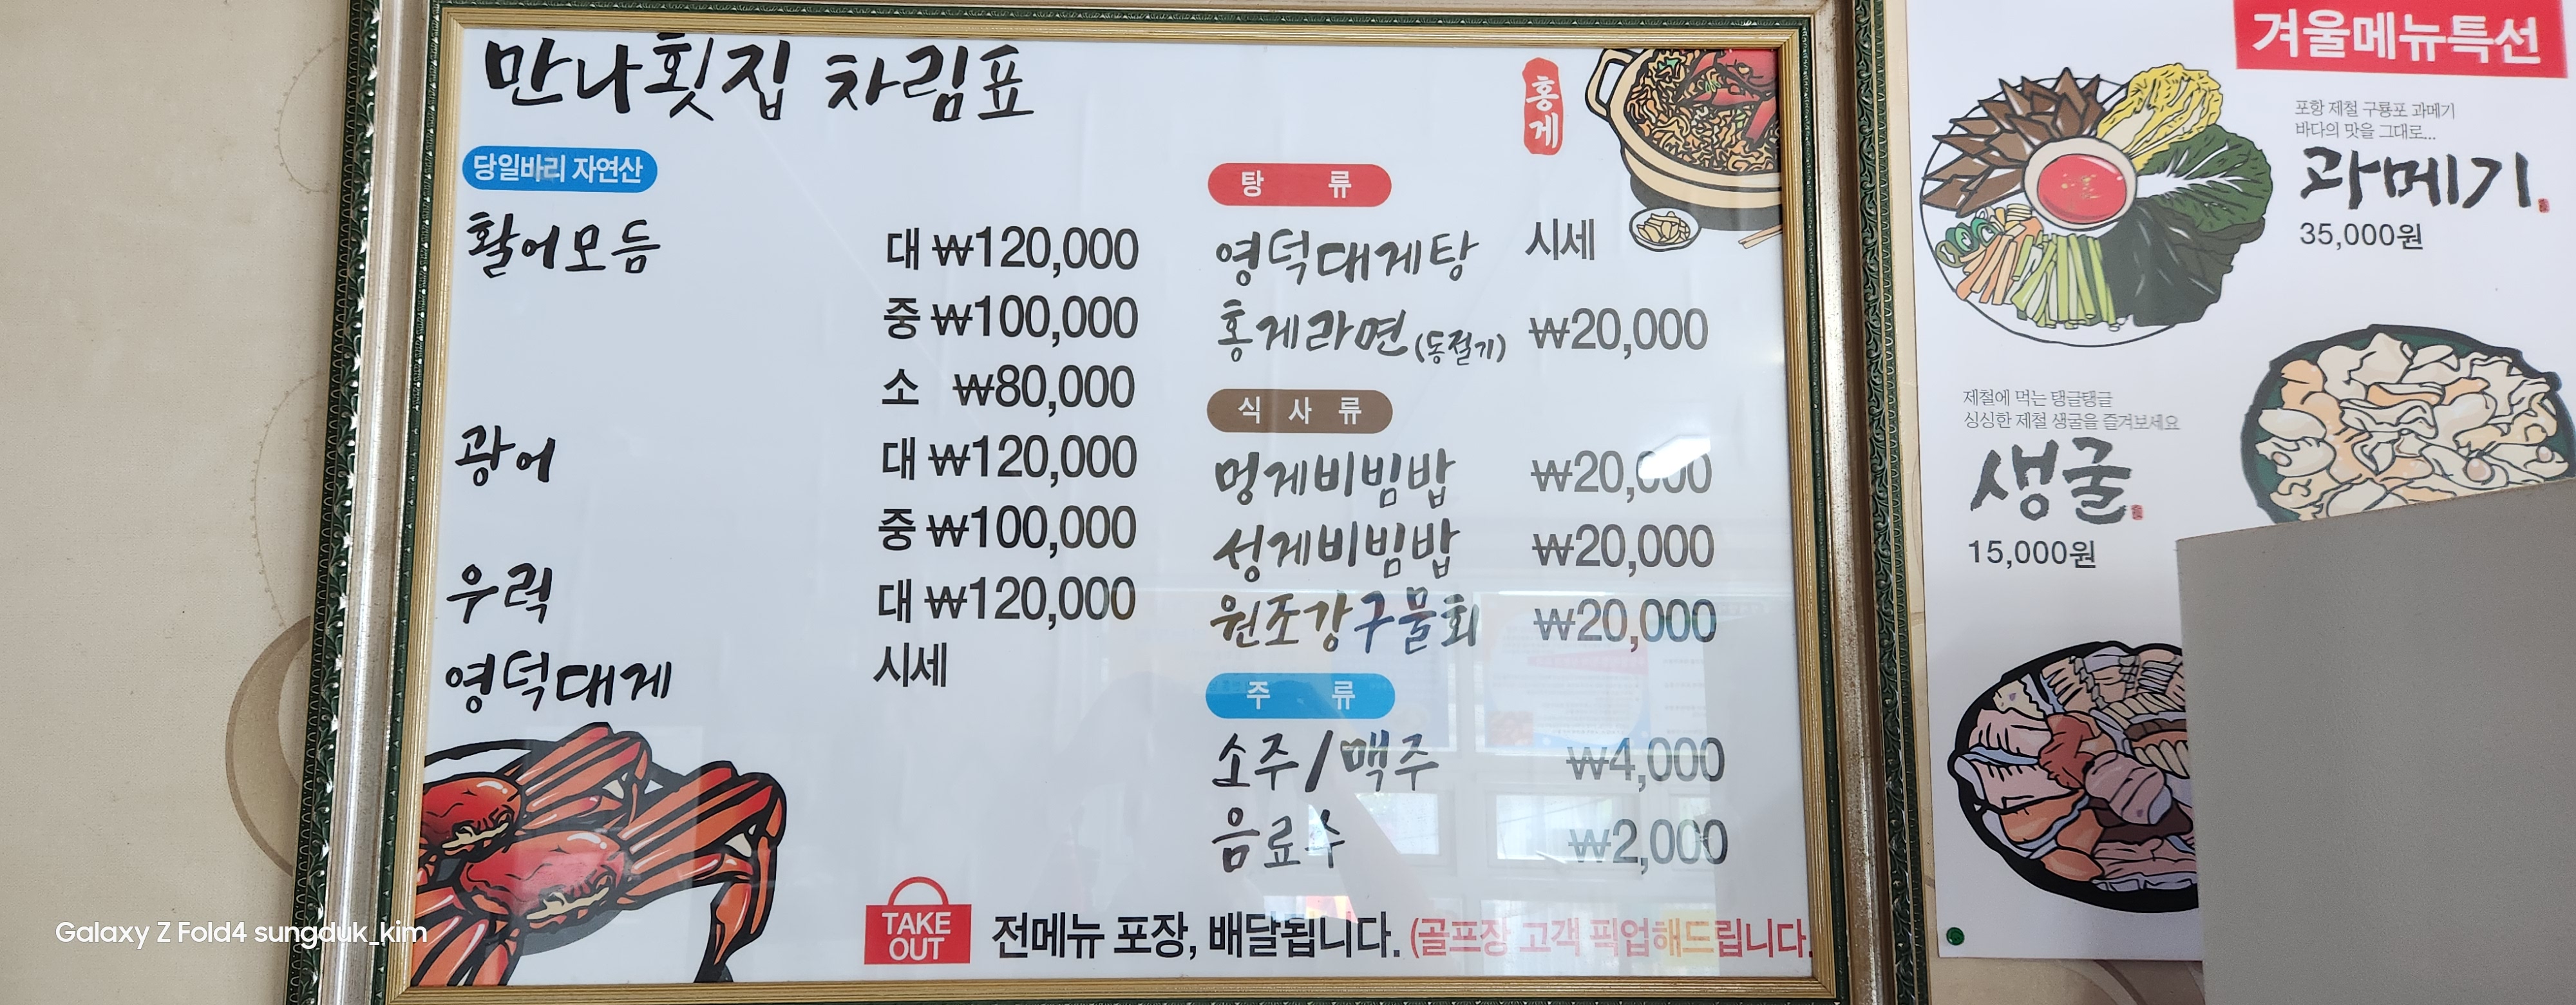 만나횟집 차림표
홍게
당일바리 자연산
활어모듬 대 ₩120,000
중 ₩100,000
소 ₩80,000
광어 대 ₩120,000
중 ₩100,000
우럭 대 ₩120,000
영덕대게 시세
탕 류
영덕대게탕 시세
홍게라면(동절기) ₩20,000
식 사 류
멍게비빔밥 ₩20,000
성게비빔밥 ₩20,000
원조강구물회 ₩20,000
주 류
소주/맥주 ₩4,000
음료수 ₩2,000
TAKE
OUT
전메뉴 포장, 배달됩니다. (골프장 고객 픽업해드립니다.
겨울메뉴특선
포항 제철 구룡포 과메기
바다의 맛을 그대로...
과메기
35,000원
제철에 먹는 탱글탱글
싱싱한 제철 생굴을 즐겨보세요
생굴
15,000원
Galaxy Z Fold4 sungduk_kim